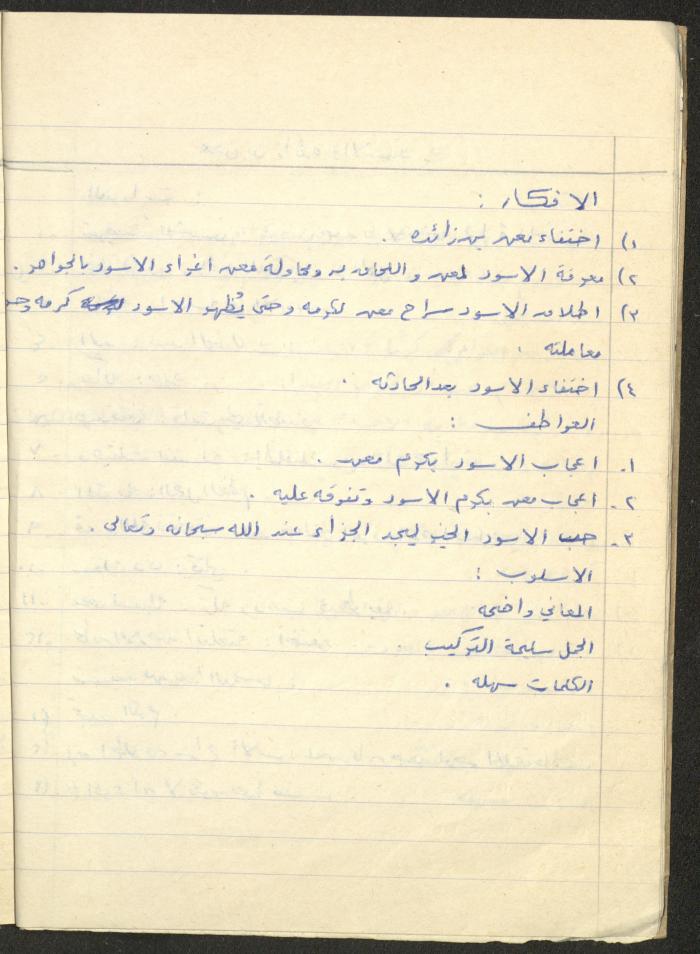 الافكار :
١) اختفاء معن بن زائده .
٢) معرفة الاسود لمعن واللحاق به ومحاولة معن اغراء الاسود بالجواهر .
٣) اطلاق الاسود سراح معن لكرمه وحتى يُظهر الاسود كرمه وحسن
معاملته .
٤) اختفاء الاسود بعد الحادثه .
العواطف :
١. اعجاب الاسود بكرم معن .
٢. اعجاب معن بكرم الاسود وتفوقه عليه .
٣. حب الاسود الخير ليجد الجزاء عند الله سبحانه وتعالى .
الاسلوب :
المعاني واضحه
الجمل سليمة التركيب
الكلمات سهله .